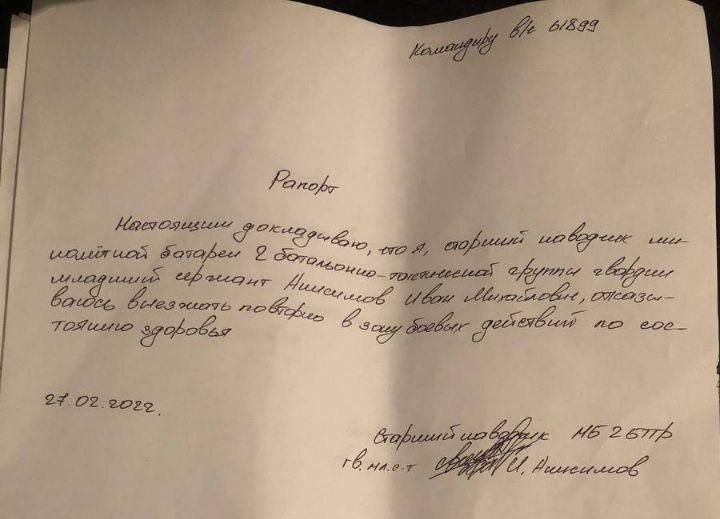 Командиру в/ч 61899
Рапорт
Настоящим докладываю, что я, старший наводчик ми-
номётной батареи 2 батальонно-тактической группы гвардии
младший сержант Анисимов Иван Михайлович, отказы-
ваюсь выезжать повторно в зону боевых действий по сос-
тоянию здоровья
27.02.2022.
Старший наводчик МБ 2 БТГр
гв. мл. с-т И. Анисимов